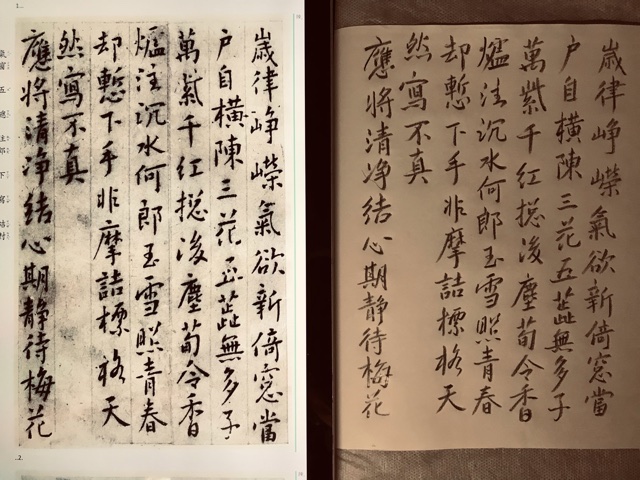 歲律崢嶸氣欲新倚窓當
戶自橫陳三花五蕋無多子
萬紫千红捴後塵荀令香
爐注沉水何郎玉雪照青春
却慙下手非摩詰標格天
然寫不真
應將清净结心期静待梅花
歲律崢嶸氣欲新倚窓當
戶自橫陳三花五蕋無多子
萬紫千红捴後塵荀令香
爐注沉水何郎玉雪照青春
却慙下手非摩詰標格天
然寫不真
應將清净结心期静待梅花